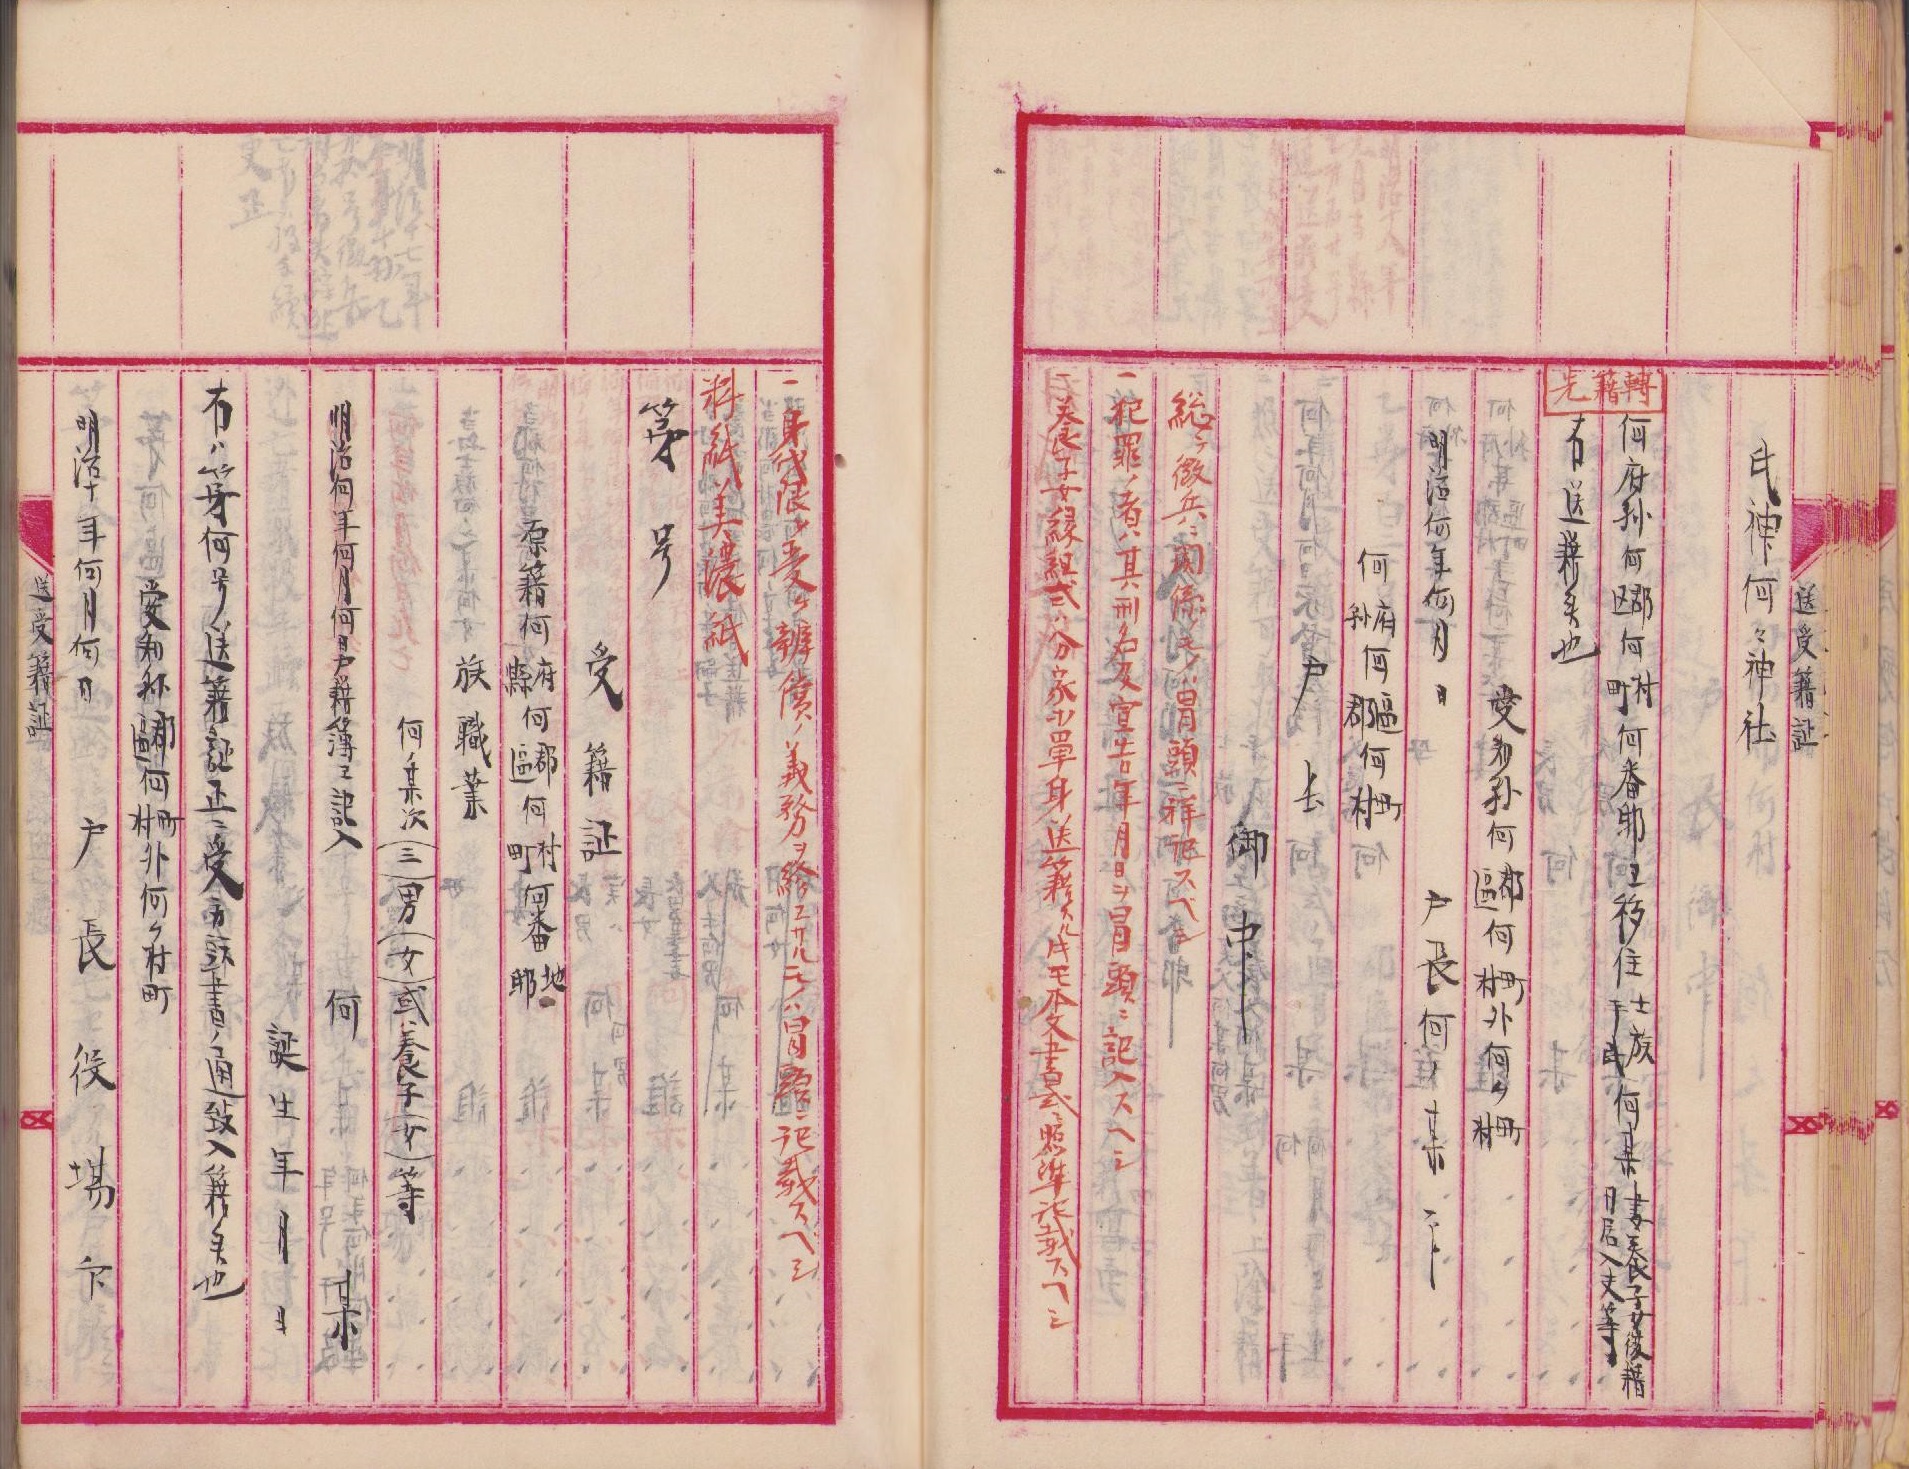 送受籍証
氏神何々神社
轉籍先
何府縣何区郡何村町何番邸エ移住士族平民何某妻養子女復籍同居入夫等
右送籍候也
愛知縣何郡區何町村外何ヶ町村
明治何年何月 日 戸長何ノ某 印
何府縣何區郡何町村
戸長
御中
総テ徴兵ニ関係ノモノハ冒頭ニ詳記スベシ
一犯罪ノ者ハ其刑名及宣告年月日ヲ冒頭ニ記入スヘシ
一養子女縁組或ハ分家等単身送籍スル片モ本文書式ニ照準記載スヘシ
一身代限ヲ受ケ辨償ノ義務ヲ終エサルモノハ冒頭ニ記載スヘシ
料紙美濃紙
第 号
受籍証
原籍何府縣何郡區何村町何番地邸
族職業
何ノ某次(三)男(女)或ハ養子(女)等
明治何年何月何日戸籍簿エ記入 何 某
誕生年月日
右ハ第何号ノ送籍証正ニ受取方該書ノ通致入籍候也
愛知縣郡區何町村外何ヶ村町
明治十年何月何日 戸長役場印
送受籍証